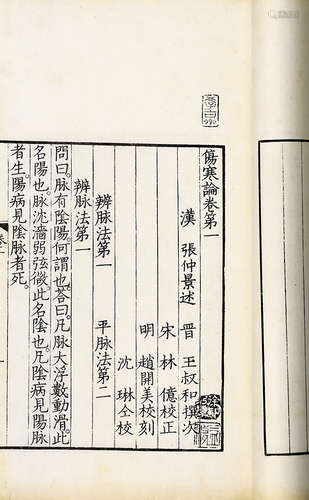 傷寒論卷第一
漢 張仲景述 晉 王叔和撰次
宋 林 億校正
明 趙開美校刻
沈 琳仝校
辨脉法第一 平脉法第二
辨脉法第一
問曰。脉有陰陽何謂也。荅曰。凡脉大浮數動滑。此
名陽也。脉沈濇弱弦微。此名陰也。凡陰病見陽脉
者生。陽病見陰脉者死。